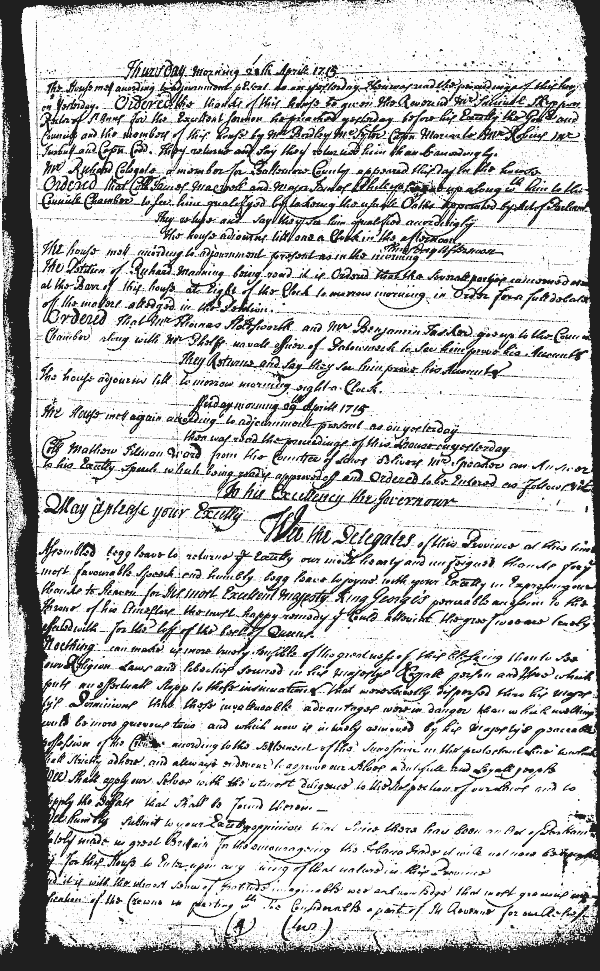 Thursday morning 28th April 1715
The House met according to adjournment present as on yesterday then was read the proceedings of this house
on yesterday. Ordered the thanks of this house be given the Reverend Mr
Rector of St Anns for the Excellent Sermon he preached yesterday before his Excelly the Govr and
Councill and the members of this house by Mr Bradley Mr Coptn Mr
and Coptn They returne and say they returned him thanks accordingly.
Mr Richard Colegate a member for Baltemore County appeared this day in the house
Ordered that Coll James Maxwell and Major James go up along with him to the
Councile Chamber to see him qualified by taking the usuale Oaths appointed by Act of Parliamt
They returne and say they see him qualified accordingly
The house adjourns till one a Clock in the afternoon
Thursday afternoon
The house mett according to adjournment present as in the morning
The Petition of Richard Manning being read it is Ordered that the severall parties concerned are
at the Barr of this house att Eight of the Clock to morrow morning in Order for a full debate
off the matters alledged in the Petition.
Ordered that Mr Thomas and Mr Benjamin Tasker goe up to the Councill
Chamber along with Mr navall officer of Patowmeck to see him prove his Accounts
They Returne and say they see him prove his Accounts
The house adjourns till to morrow morning eight a Clock.
Friday morning 29th Aprill 1715
The House mett again according to adjournment present as on yesterday
then was read the proceedings of this house on yesterday
Coll Mathew Tilman Ward from the Comittee of Laws delivers Mr Speaker an Answer
to his Excelly Speech which being read is approved off and Ordered to be Entered as follows Vizt
To his Excellency the Governour
May it please your Excelly
Wee the Delegates of this Province at this time
Assembled begg leave to returne yr Excelly our most hearty and unfeigned thanks for yr
most favourable Speech and humbly begg leave to joyne with your Excelly in Expressing our
thanks to heaven for his most Excelent Majesty King George's peaceable accession to the
throne of his Ancestors the most happy remedy yt Could alleviate the greif wee are
affected with for the loss of the best of Queens.
Nothing can make us more truely sensible of the greatness of this blessing then to see
our Religion Laws and liberties secured in his Majestys Royall person and which
puts an effectuall stopp to those insinuations that were dispersed thro his Majes
ty's Dominions that those invaluable advantages were in danger than which nothing
could be more grevious to us and which now is intirely removed by his Majesty's peaceable
possession of the Crown according to the settlement of the Succession in the protestant line to which
shall strictly adhere and always endeavour to approve our selves dutyfull and Loyall people
Wee shall apply our selves with the utmost diligence to the inspection of our Laws and to
supply the defects that shall be found therein
Wee humbly submit to your Excellys oppinion that since there has been an Act of Parliamt
lately made in great Brittain for the encouraging the Trade it will not now be
for this House to Enter upon any thing of that nature in this Province
and it is with the utmost sence of gratitude imaginable wee acknowledge that most gracious
of the Crowne in parting with so Considerable a part of its Revenue for our